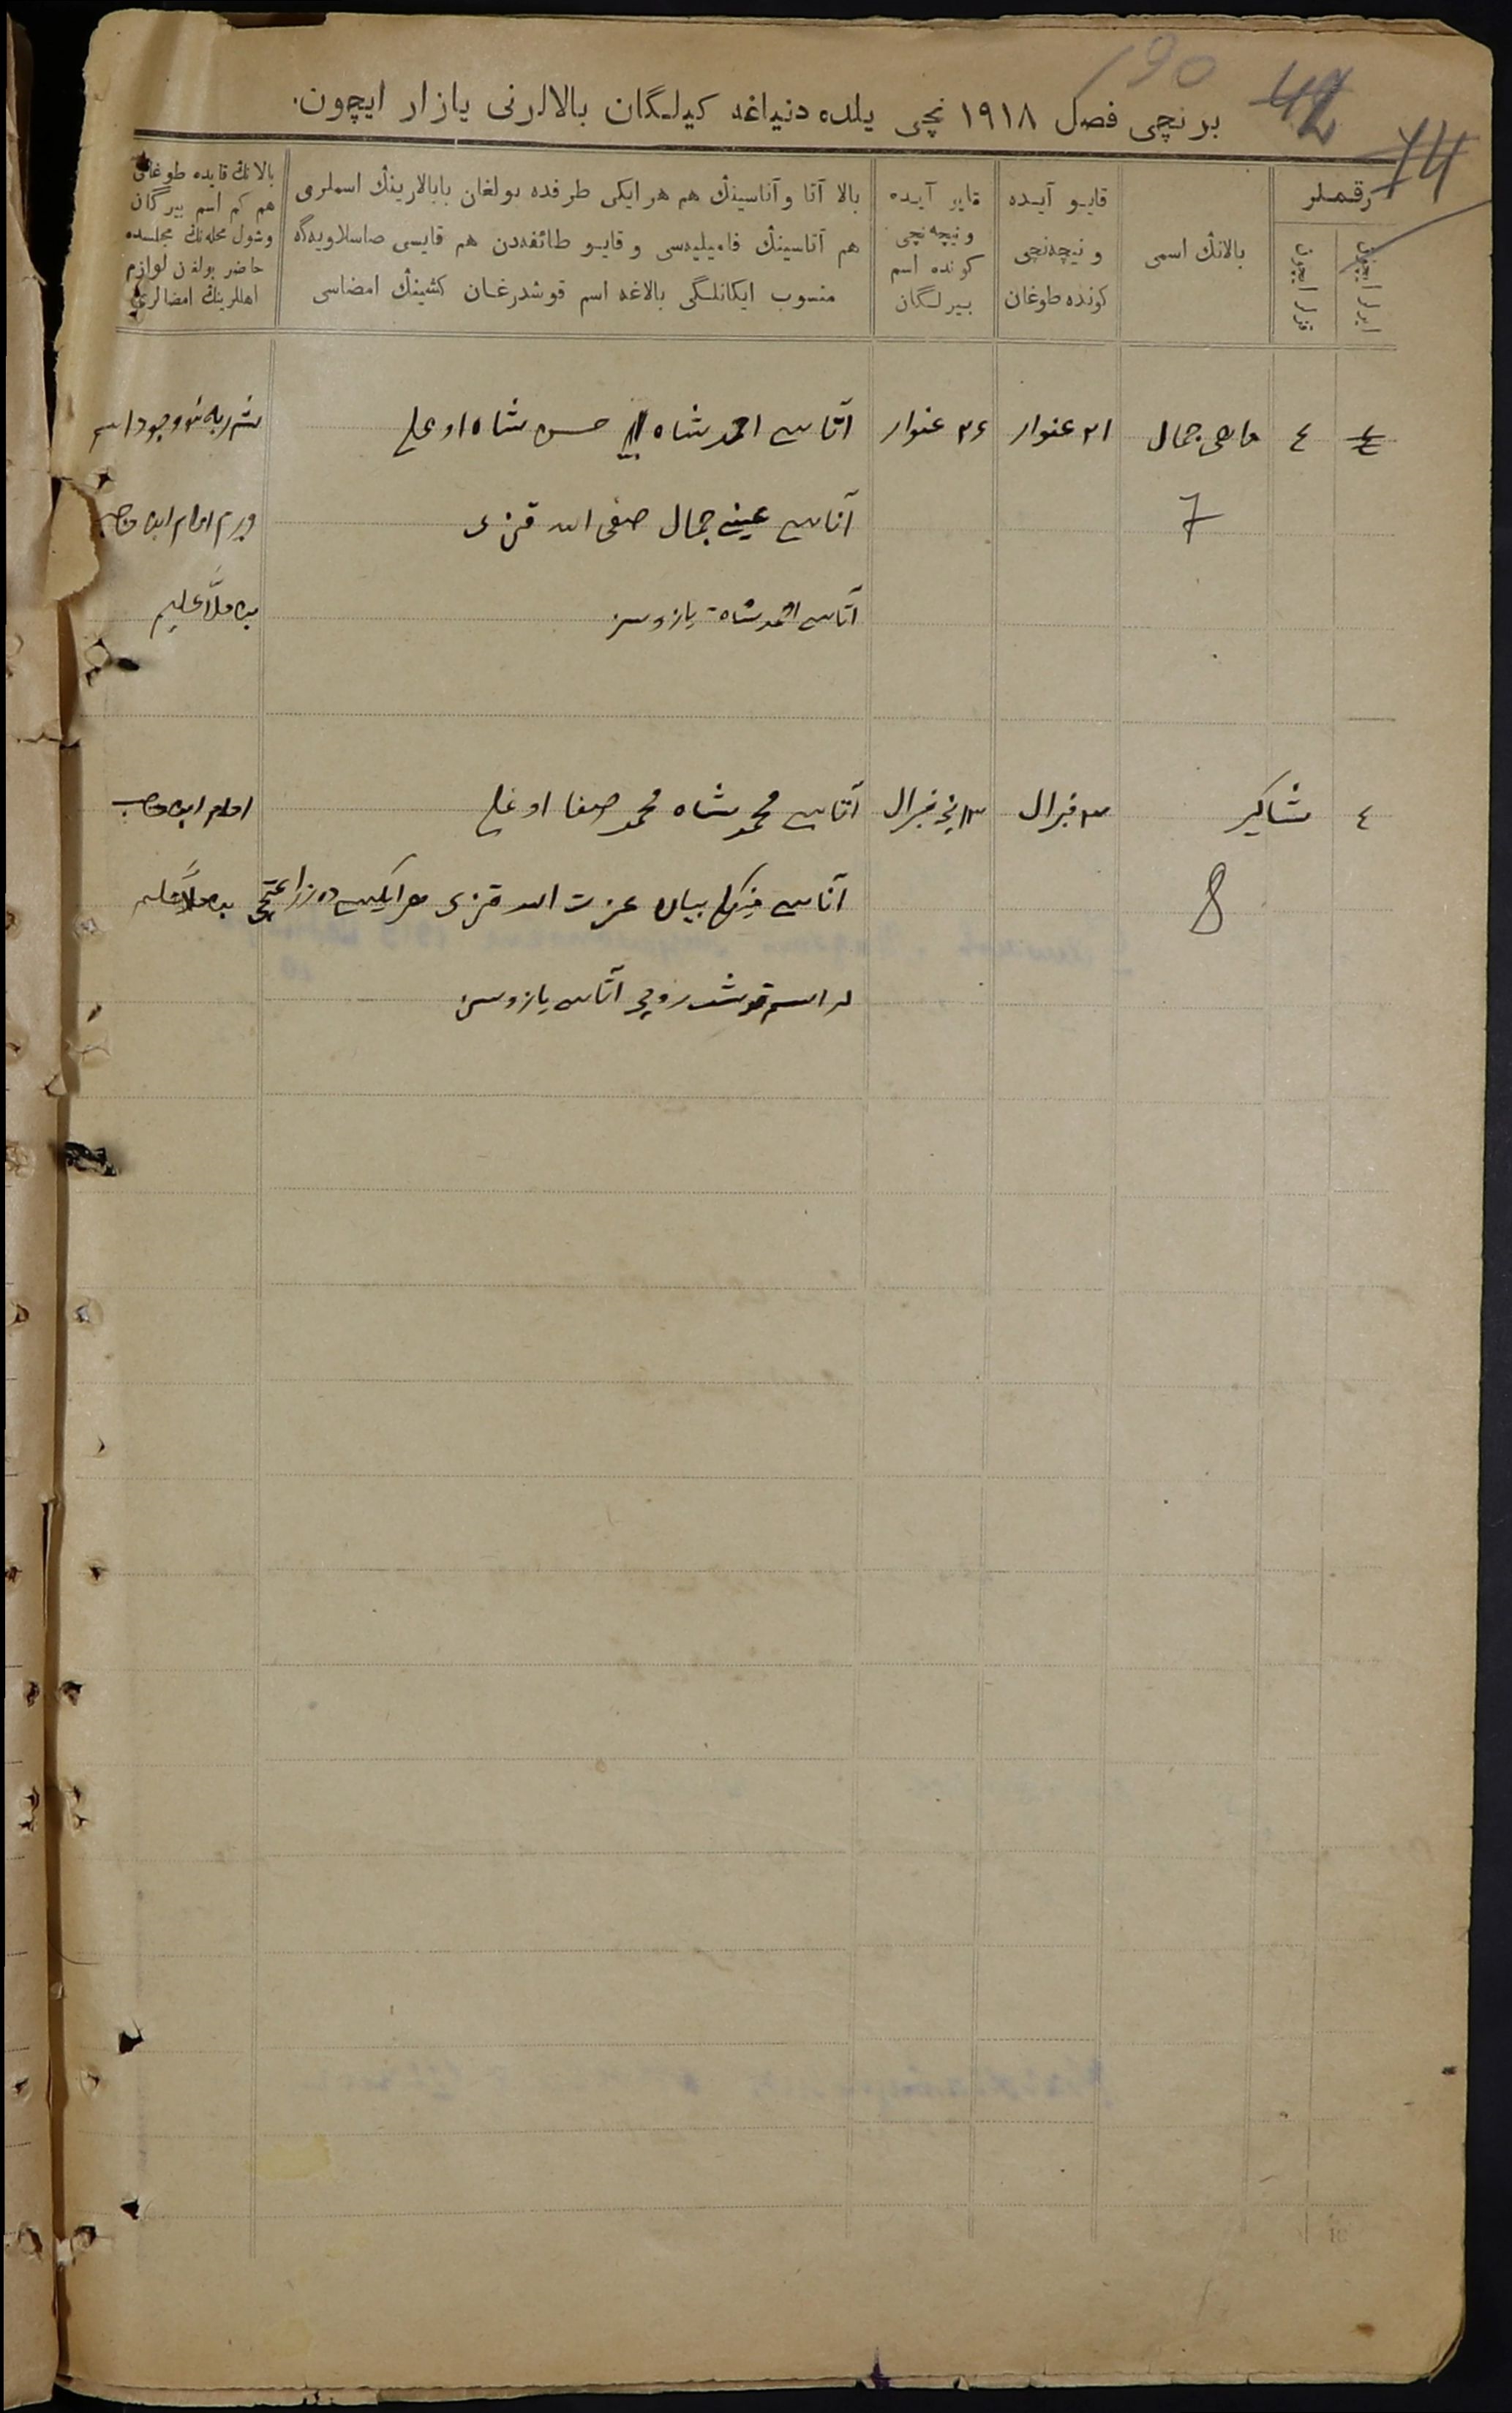 190
42
74
برنچی فصل ۱۹۱۸ نچی یلده دنیاغه کیلگان بالالرنی یازار ایچون.
رقملر
ایرلر ایچون
قزلر ایچون
بالانڭ اسمی
قایو آیده
و نیچه‌نچی
کونده طوغان
قایو آیده
و نیچه نچی
کونده اسم
بیرلگان
بالا آتا و آناسینڭ هم هر ایکی طرفده بولغان بابالارینڭ اسملری
هم آتاسینڭ فامیلیه‌سی و قایو طائفه‌دن هم قایسی صاسلاویه‌گه
منسوب ایکانلگی بالاغه اسم قوشدرغان کشینڭ امضاسی
بالانڭ قایده طوغانی
هم کم اسم بیرگان
وشول محله‌نڭ مجلسده
حاضر بولغان لوازم
اهللرینڭ امضالری
٤ ماهی جمال ۲۱ عنوار ۲۶ عنوار آتاسی احمدشاه حسن شاه اوغلی
7 آناسی عینی جمال صفی الله قزی
آتاسی احمدشاه یازوسز
ملا علیم
٤ شاکیر ۳ فبرال ۱۳نچی فبرال آتاسی محمدشاه محمد صفا اوغلی امام
8 آناسی بیان عزت الله قزی هر ایکیسی ده زراعتچی
اسم قوشدروچی آتاسی یازوسز